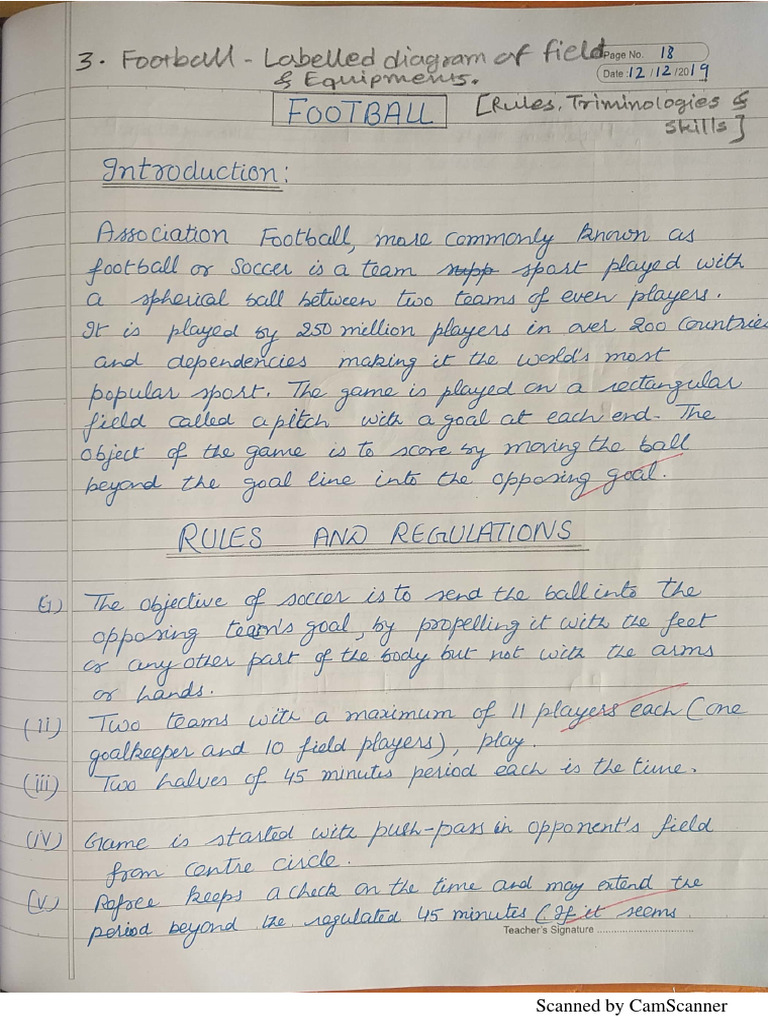 3. Football - Labelled diagram of field
& Equipments.
Page No. 18
Date: 12/12/2019
FOOTBALL
[Rules, Triminologies &
Skills]
Introduction:
Association Football, more commonly known as
football or Soccer is a team sport played with
a spherical ball between two teams of even players.
It is played by 250 million players in over 200 countries
and dependencies making it the world's most
popular sport. The game is played on a rectangular
field called a pitch with a goal at each end. The
object of the game is to score by moving the ball
beyond the goal line into the opposing goal.
RULES AND REGULATIONS
(i) The objective of soccer is to send the ball into the
opposing team's goal, by propelling it with the feet
or any other part of the body but not with the arms
or hands.
(ii) Two teams with a maximum of 11 players each (one
goalkeeper and 10 field players), play.
(iii) Two halves of 45 minutes period each is the time.
(iv) Game is started with push-pass in opponent's field
from centre circle.
(v) Refree keeps a check on the time and may extend the
period beyond the regulated 45 minutes (If it seems
Teacher's Signature
Scanned by CamScanner